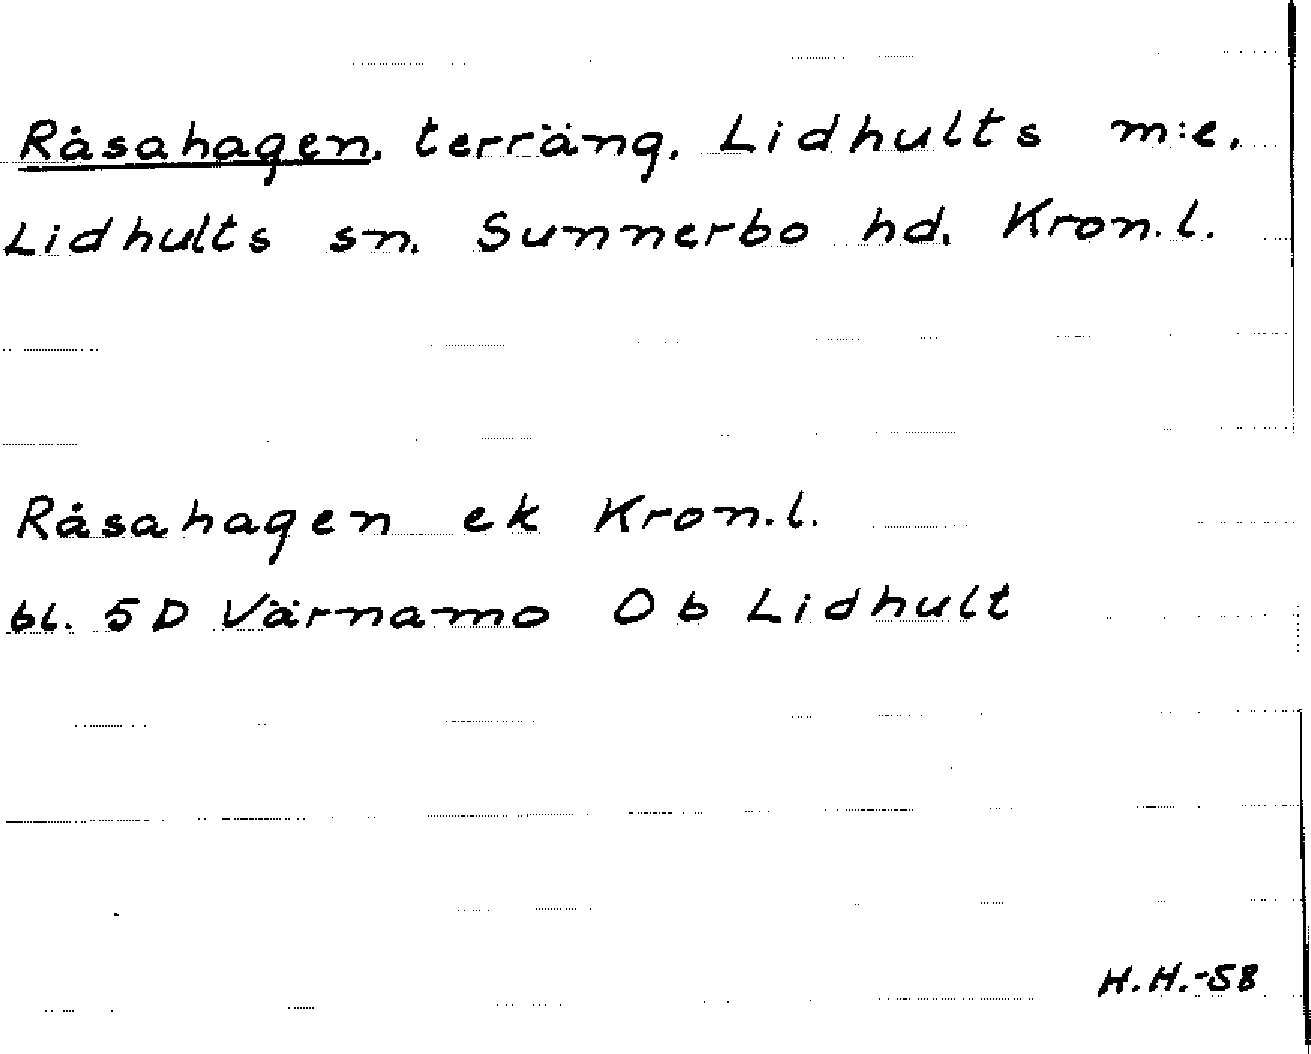 Råsahagen, terräng, Lidhults m:e,
Lidhults sn. Sunnerbo hd. Kron.l.
Råsahagen ek Kron.l.
bl. 5D Värnamo Ob Lidhult
H.H.-58